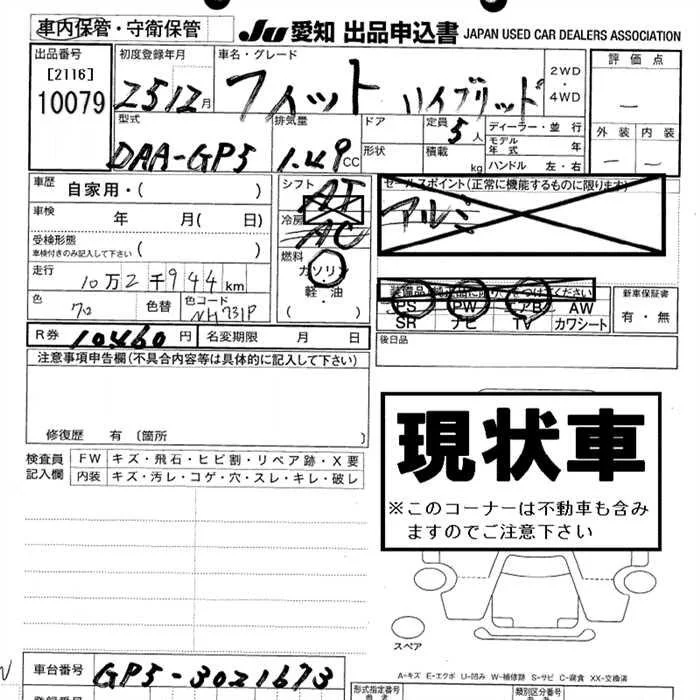 車内保管・守衛保管
Ju 愛知 出品申込書 JAPAN USED CAR DEALERS ASSOCIATION
出品番号
[2116]
10079
初度登録年月
25 12月
車名・グレード
フィット ハイブリッド
2WD
・
4WD
評価点
—
外装 内装
— —
型式
DAA-GP5
排気量
1.49 CC
ドア
形状
定員 5人
積載 kg
ディーラー・並行
モデル年式 年
ハンドル 左・右
車歴 自家用・( )
車検 年 月( 日)
受検形態
車検付きのみ記入して下さい ( )
走行 10万2千944km
色 色替 色コード
クロ NH731P
シフト AT
冷房 AC
燃料
ガソリン
・
軽・油
( )
セールスポイント(正常に機能するものに限ります)
アルミ
PS PW エアB AW
SR ナビ TV カワシート
新車保証書
有・無
R券 10460円 名変期限 月 日
後日品
注意事項申告欄(不具合内容等は具体的に記入して下さい)
修復歴 有 〔箇所 〕
検査員記入欄
FW キズ・飛石・ヒビ割・リペア跡・X要
内装 キズ・汚レ・コゲ・穴・スレ・キレ・破レ
現状車
※このコーナーは不動車も含み
ますのでご注意下さい
スペア
A-キズ E-エクボ U-凹み W-補修跡 S-サビ C-腐食 XX-交換済
車台番号 GP5-3021673
形式指定番号 類別区分番号